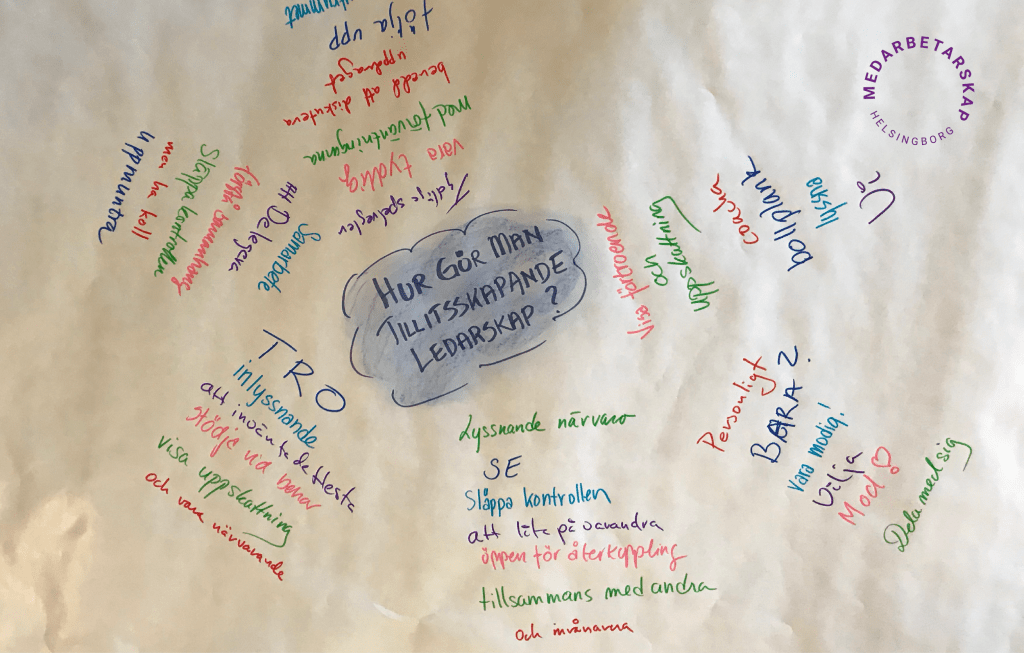 MEDARBETARSKAP
HELSINGBORG
HUR GÖR MAN
TILLITSSKAPANDE
LEDARSKAP?
Tydliga spelregler
vara tydlig
med förväntningarna
beredd att diskutera
uppdraget
följa upp
Samarbete
Att Delegera
förstå sammanhang
Släppa kontrollen
men ha koll
uppmuntra
TRO
inlyssnande
att invänta de flesta
stödja vid behov
visa uppskattning
och vara närvarande
Lyssnande närvaro
SE
Släppa kontrollen
att lita på varandra
öppen för återkoppling
tillsammans med andra
och invånarna
Personligt
BARA 2.
vara modig!
Vilja
Mod!
Dela med sig
Visa förtroende
och
uppskattning
coacha
bollplank
lyssna